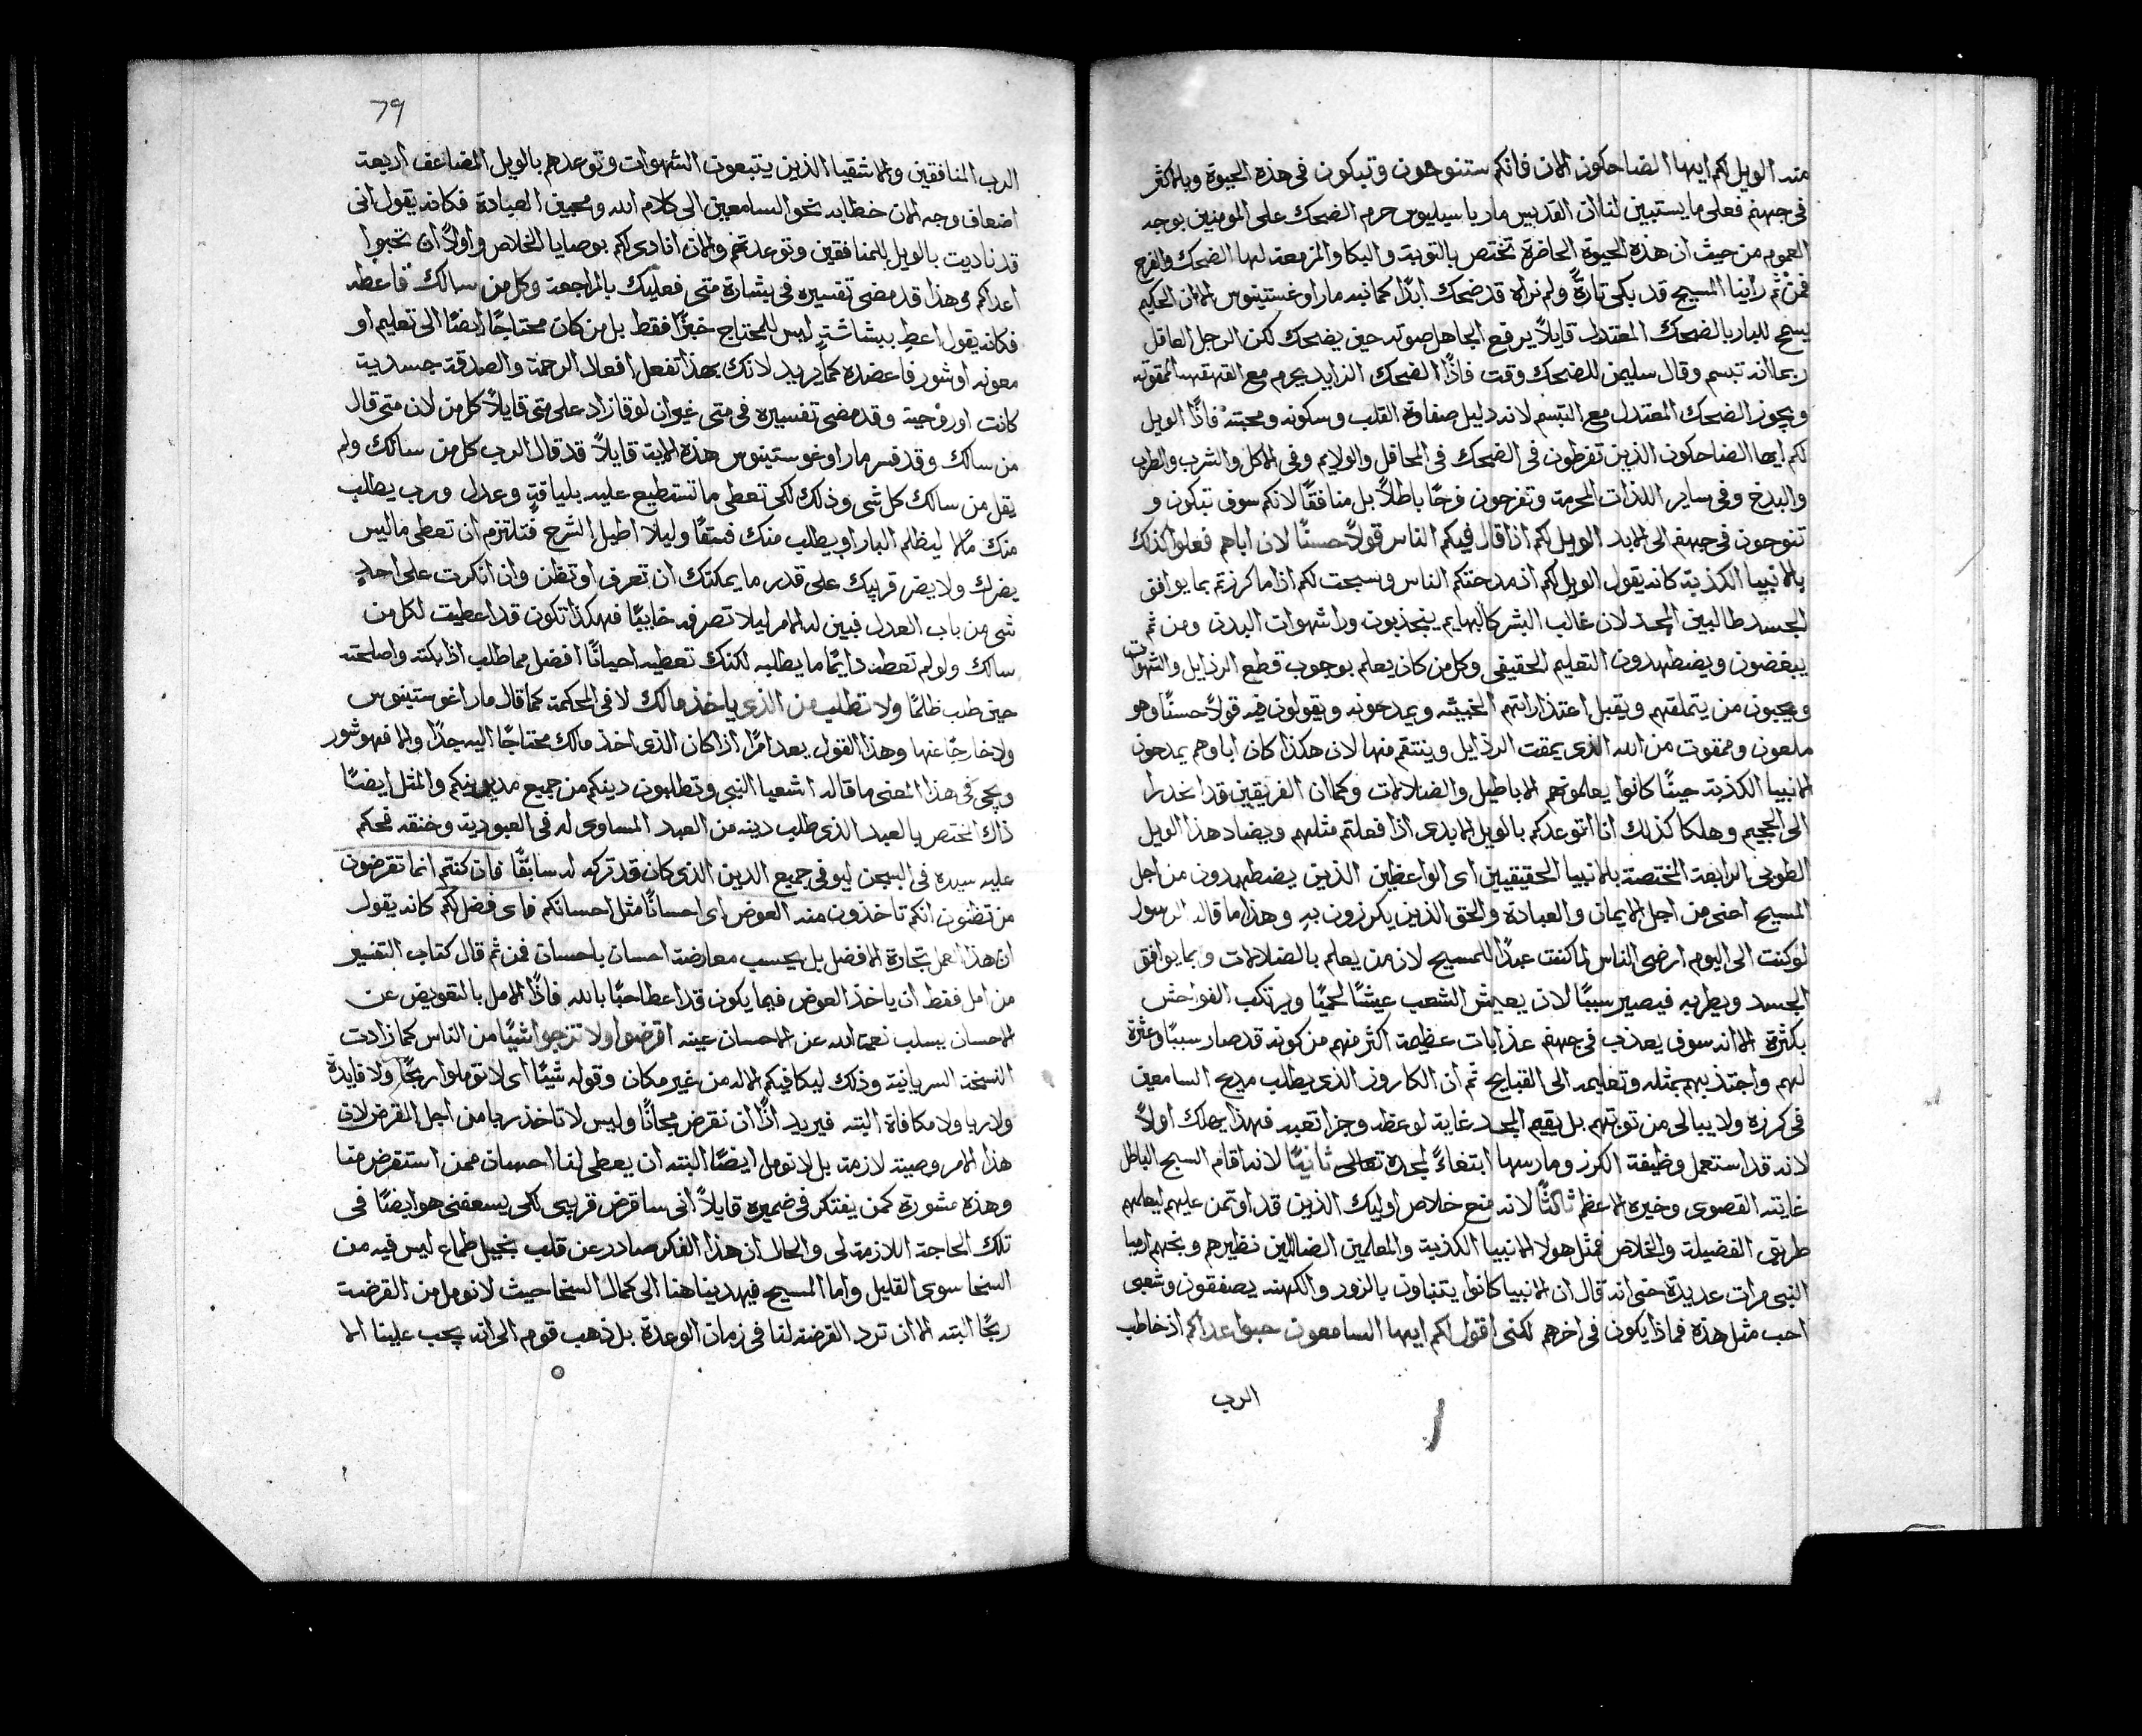 منه الويل لكم ايها الضاحكون الان فانكم ستنوحون وتبكون في هذه الحيوة وبالاكثر
في جهنم فعلى ما يستبين لنا ان القديس مار باسيليوس حرم الضحك على المومنين بوجه
العموم من حيث ان هذه الحيوة الحاضرة تختص بالتوبة والبكا والمزمعة لها الضحك والفرح
فمن ثم راينا المسيح قد بكى تارةً ولم نراه قد ضحك ابدًا كما نبه مار اوغستينوس الا ان الحكيم
يسمح للبار بالضحك المعتدل قايلاً يرفع الجاهل صوته حين يضحك لكن الرجل العاقل
ربما انه تبسم وقال سليمن للضحك وقت فاذًا الضحك الزايد يحرم مع القهقهه الممقوته
ويجوز الضحك المعتدل مع التبسم لانه دليل صفاوة القلب وسكونه ومحبته فاذًا الويل
لكم ايها الضاحكون الذين تفرطون في الضحك في المحافل والولايم وفي الاكل والشرب والطرب
والبذخ وفي ساير اللذات المحرمة وتفرحون فرحًا باطلاً بل منافقًا لانكم سوف تبكون و
تنوحون في جهنم الى الابد الويل لكم اذا قال فيكم الناس قولاً حسنًا لان اباهم فعلوا كذلك
بالانبيا الكذبة كانه يقول الويل لكم اذ مدحتكم الناس وسبحت لكم اذا ما كرزتم بما يوافق
الجسد طالبين المجد لان غالب البشر كالبهايم ينجذبون ورا شهوات البدن ومن ثم
يبغضون ويضطهدون التعليم الحقيقي وكل من كان يعلم بوجوب قطع الرذايل والشهوات
ويحبون من يتملقهم ويقبل اعتذاراتهم الخبيثه ويمدحونه ويقولون فيه قولاً حسنًا وهو
ملعون وممقوت من الله الذي يمقت الرذايل وينتقم منها لان هكذا كان اباوهم يمدحون
الانبيا الكذبة حينًا كانوا يعلمونهم الاباطيل والضلالات وكما ان الفريقين قد انحدرا
الى الجحيم وهلكا كذلك انا اتوعدكم بالويل الابدي اذا فعلتم مثلهم ويضاد هذا الويل
الطوبى الرابعة المختصة بالانبيا الحقيقيين اي الواعظين الذين يضطهدون من اجل
المسيح اعني من اجل الايمان والعبادة والحق الذين يكرزون به وهذا ما قاله الرسول
لو كنت الى اليوم ارضي الناس لما كنت عبدًا للمسيح لان من يعلم بالضلالات وبما يوافق
الجسد ويطربه فيصير سببًا لان يعيش الشعب عيشًا لحميًا ويرتكب الفواحش
بكثرة الا انه سوف يعذب في جهنم عذابات عظيمة اكثر منهم من كونه قد صار سببًا وعثرة
لهم واجتذبهم بمثله وتعليمه الى القبايح ثم ان الكاروز الذي يطلب مديح السامعين
في كرزه ولا يبالي من توبتهم بل يقيم المجد غاية لوعظه وجزا تعبه فهذا يهلك اولاً
لانه قد استعمل وظيفة الكرز ومارسها ابتغاءً لمجده تعالى ثانيًا لانه اقام السبح الباطل
غايته القصوى وخيره الاعظم ثالثًا لانه منع خلاص اوليك الذين قد اوتمن عليهم ليعلمهم
طريق الفضيلة والخلاص فمثل هولا الانبيا الكذبة والمعلمين الضالين نظيرهم وبخهم ارميا
النبي مرات عديدة حتى انه قال ان الانبيا كانوا يتنباون بالزور والكهنه يصفقون وشعبى
احب مثل هذه فماذا يكون في اخرهم لكني اقول لكم ايها السامعون حبوا اعداكم اذ خاطب
الرب
79
الرب المنافقين والاشقيا الذين يتبعون الشهوات وتوعدهم بالويل المضاعف اربعة
اضعاف وجه الان خطابه نحو السامعين الى كلام الله ومحبين العبادة فكانه يقول اني
قد ناديت بالويل للمنافقين وتوعدتهم والان انادي لكم بوصايا الخلاص واولاً ان تحبوا
اعداكم وهذا قد مضى تفسيره في بشارة متى فعليك بالمراجعة وكل من سالك فاعطه
فكانه يقول اعطِ ببشاشةٍ ليس للمحتاج خبزًا فقط بل من كان محتاجًا ايضًا الى تعليم او
معونه او شور فاعضده كما يريد لانك بهذا تفعل افعال الرحمة والصدقة جسدية
كانت او روحية وقد مضى تفسيره في متى غير ان لوقا زاد على متى قايلاً كل من لان متى قال
من سالك وقد فسر مار اوغوستينوس هذه الاية قايلاً قد قال الرب كل من سالك ولم
يقل من سالك كل شي وذلك لكي تعطي ما تستطيع عليه بلياقةٍ وعدل ورب يطلب
منك مالا ليظلم البار او يطلب منك فسقًا وليلا اطيل الشرح فتلتزم ان تعطي ما ليس
يضرك ولا يضر قريبك على قدر ما يمكنك ان تعرف او تظن وان انكرت على احدٍ
شي من باب العدل فبين له الامر ليلا تصرفه خايبًا فهكذا تكون قد اعطيت لكل من
سالك ولو لم تعطه دايمًا ما يطلبه لكنك تعطيه احيانًا افضل مما طلب اذا بكته واصلحته
حين طلب ظلمًا ولا تطلب من الذي ياخذ مالك لا في المحكمة كما قال مار اغوستينوس
ولا خارجًا عنها وهذا القول يعد امرًا اذا كان الذي اخذ مالك محتاجًا اليه جدًا والا فهو شور
ويجي في هذا المعنى ما قاله اشعيا النبي وتطلبون دينكم من جميع مديونيكم والمثل ايضًا
ذاك المختص بالعبد الذي طلب دينه من العبد المساوي له في العبودية وخنقه فحكم
عليه سيده في السجن ليوفي جميع الدين الذي كان قد تركه له سابقًا فان كنتم انما تقرضون
من تظنون انكم تاخذون منه العوض اي احسانًا مثل احسانكم فاي فضل لكم كانه يقول
ان هذا العمل تجارة لا فضل بل يحسب معارضة احسان باحسان فمن ثم قال كتاب التفسير
من امل فقط ان ياخذ العوض فيما يكون قد اعطا حبًا بالله فاذًا الامل بالتعويض عن
الاحسان يسلب نعمة الله عن الاحسان عينه اقرضوا ولا ترجوا شيًا من الناس كما زادت
النسخة السريانية وذلك ليكافيكم الاله من غير مكان وقوله شيًا اي لا توملوا ربحًا ولا فايدة
ولا ربا ولا مكافاة البته فيريد اذًا ان نقرض مجانًا وليس لا تاخذ ربا من اجل القرض لان
هذا الامر وصية لازمة بل لا نومل ايضًا البته ان يعطى لنا احسان ممن استقرض منا
وهذه مشورة كمن يفتكر في ضميره قايلاً اني ساقرض قريبي لكي يسعفني هو ايضًا في
تلك الحاجة اللازمة لي والحال ان هذا الفكر صادر عن قلب بخيل طماع ليس فيه من
السخا سوى القليل واما المسيح فيهدينا هنا الى كمال السخا حيث لا نومل من القرضة
ربحًا البته الا ان ترد القرضه لنا في زمان الوعدة بل ذهب قوم الى انه يجب علينا الا